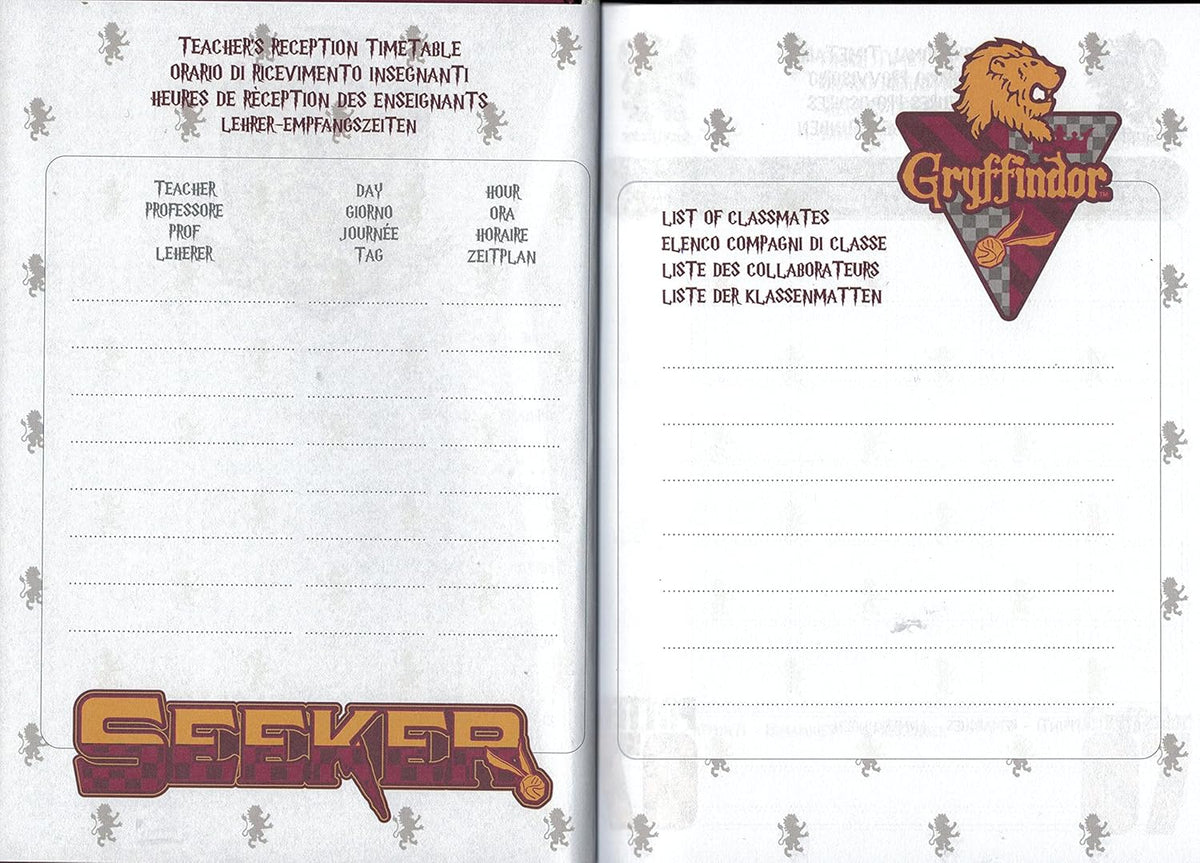 TEACHER'S RECEPTION TIMETABLE
ORARIO DI RICEVIMENTO INSEGNANTI
HEURES DE RÈCEPTION DES ENSEIGNANTS
LEHRER-EMPFANGSZEITEN
TEACHER DAY HOUR
PROFESSORE GIORNO ORA
PROF JOURNÉE HORAIRE
LEHERER TAG ZEITPLAN
SEEKER
Gryffindor™
LIST OF CLASSMATES
ELENCO COMPAGNI DI CLASSE
LISTE DES COLLABORATEURS
LISTE DER KLASSENMATTEN